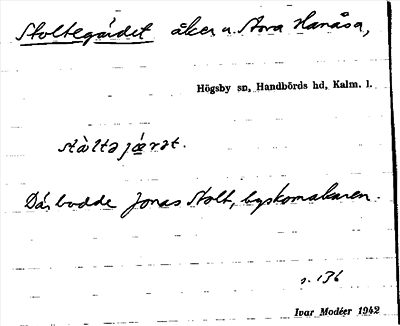 Stoltegärdet åker u. Stora Hanåsa,
Högsby sn, Handbörds hd, Kalm. l.
stàltəjǽrət.
Där bodde Jonas Stolt, byskomakaren.
s. 136
Ivar Modéer 1942